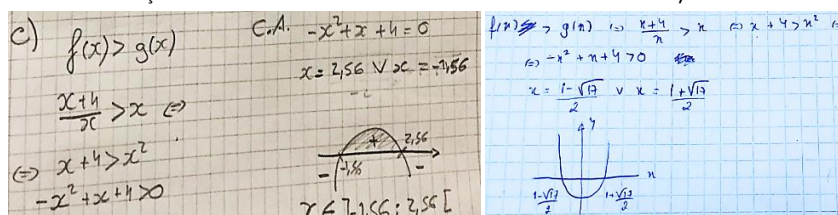 c) f(x) > g(x)
x+4/x > x ⇔
⇔ x+4 > x²
-x²+x+4>0
C.A. -x²+x+4=0
x = 2,56 ∨ x = -1,56
+
-1,56 2,56
- -
x ∈ ]-1,56 ; 2,56 [
f(x) > g(x) ⇔ x+4/x > x ⇔ x+4 > x² ⇔
⇔ -x²+x+4 >0
x = 1-√17/2 ∨ x = 1+√17/2
y
x
1-√17/2 1+√17/2